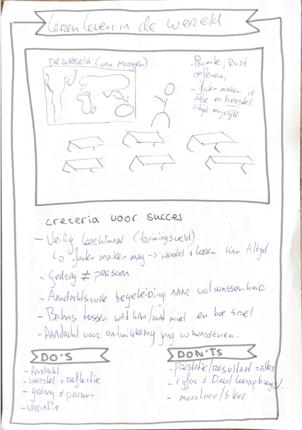 Leren leven in de wereld
De Wereld (van Morgen)
- Ruimte, rust
oefenen,
- fouten maken is
oke en herstel
altijd mogelijk
creteria voor succes
- Veilig leerklimaat (
fouten maken mag -> herstel + leren kan Altijd
- Gedrag ≠ persoon
- Aandachtsvolle begeleiding naar volwassenheid
- Balans tussen wat kan/wat moet en hoe snel
- Aandacht voor ontwikkeling jong volwassenen.
DO'S
- Aandacht
- herstel + reflectie
- gedrag ≠ persoon
- variatie
DON'TS
- prestatie/resultaat = Alles
- cijfers ≠
-